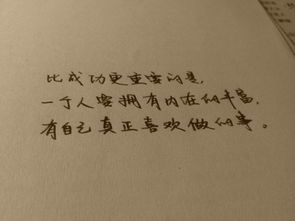 比成功更重要的是,
一个人要拥有内在的丰富,
有自己真正喜欢做的事。